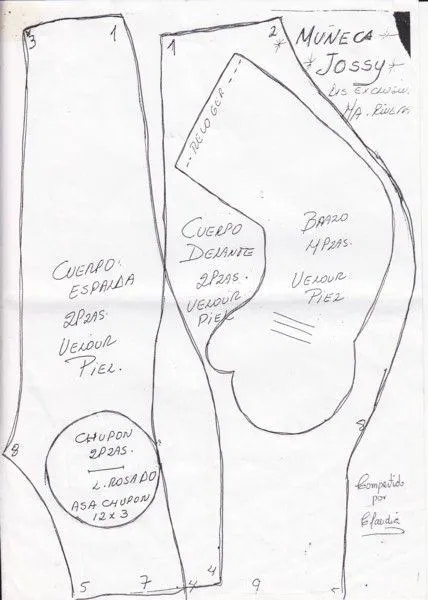 MUÑECA
* JOSSY *
MA. RIVERA
3
1
1
2
*
--RECOGER---
CUERPO
ESPALDA
2PZAS.
VELOUR
PIEL.
CUERPO
DELANTE
2PZAS.
VELOUR
PIEL
BRAZO
4PZAS.
VELOUR
PIEL
8
8
CHUPON
2PZAS.
L. ROSADO
ASA CHUPON
12 x 3
Compartido
por
Claudia
5
7
4
4
9